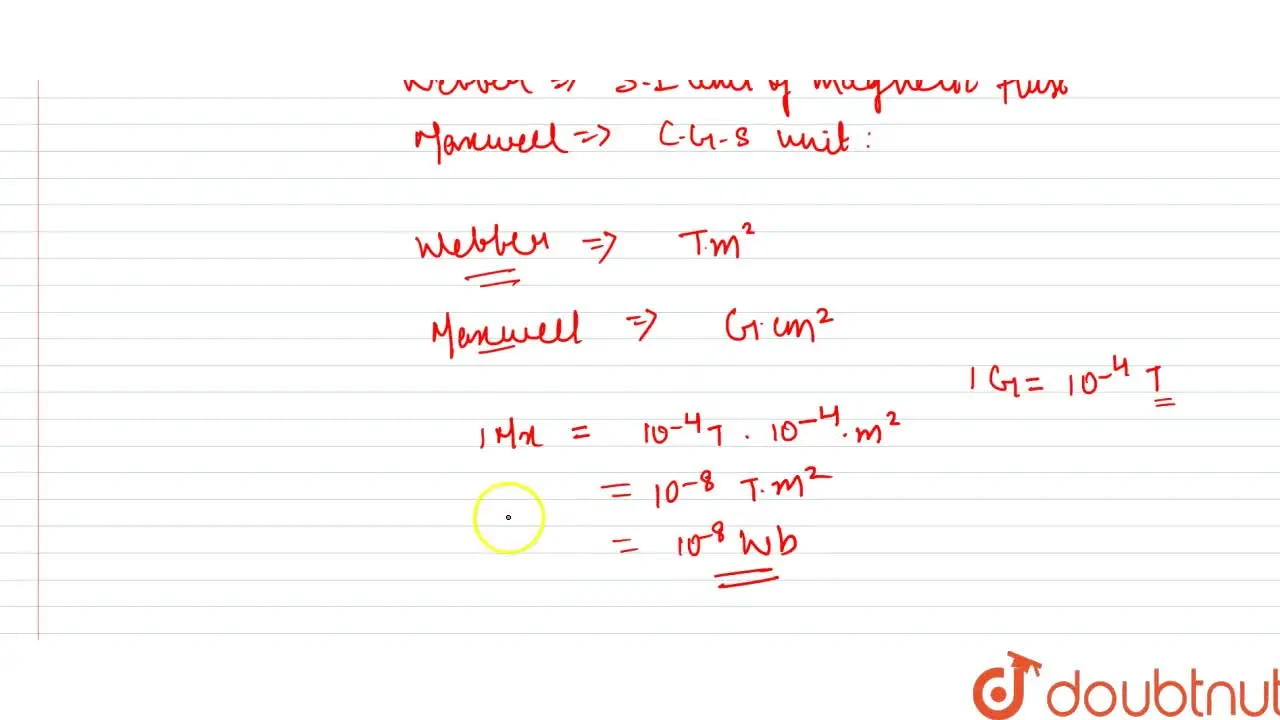 Webber => S-I unit of Magnetic flux
Maxwell => C-G-S unit :
Webber => T.m²
Maxwell => G.cm²
1 G = 10⁻⁴ T
1 Mx = 10⁻⁴ T . 10⁻⁴ . m²
= 10⁻⁸ T.m²
= 10⁻⁸ Wb
doubtnut